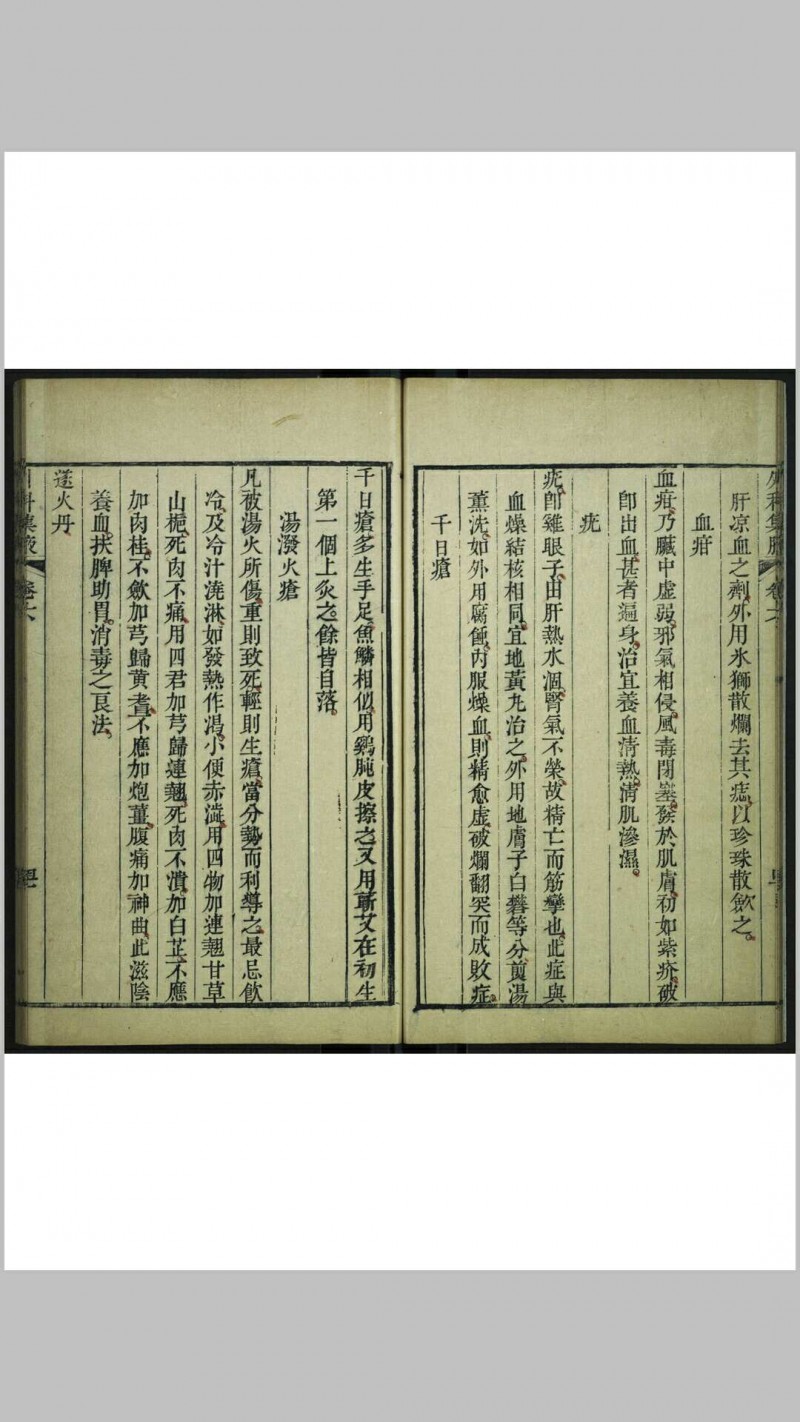 外科集腋 卷六
肝凉血之劑外用氷獅散爛去其痣以珍珠散歛之
血疳
血疳乃臟中虛弱邪氣相侵風毒閉塞發於肌膚初如紫疥破
卽出血甚者遍身治宜養血淸熱淸肌滲濕
疣
疣卽雞眼子由肝熱水涸腎氣不榮故精亡而筋攣也此症與
血燥結核相同宜地黃九治之外用地膚子白礬等分煎湯
薰洗如外用腐蝕内服燥血則精愈虛破爛翻突而成敗症
千日瘡
千日瘡多生手足魚鱗相似用鷄肫皮擦之又用蘄艾在初生
第一個上灸之餘皆自落
湯潑火瘡
凡被湯火所傷重則致死輕則生瘡當分勢而利導之最忌飲
冷及冷汁澆淋如發熱作渴小便赤澁用四物加連翹甘草
山梔死肉不痛用四君加芎歸連翹死肉不潰加白芷不應
加肉桂不歛加芎歸黃耆不應加炮薑腹痛加神曲此滋陰
養血扶脾助胃消毒之良法
逶火丹
外科集腋 卷六